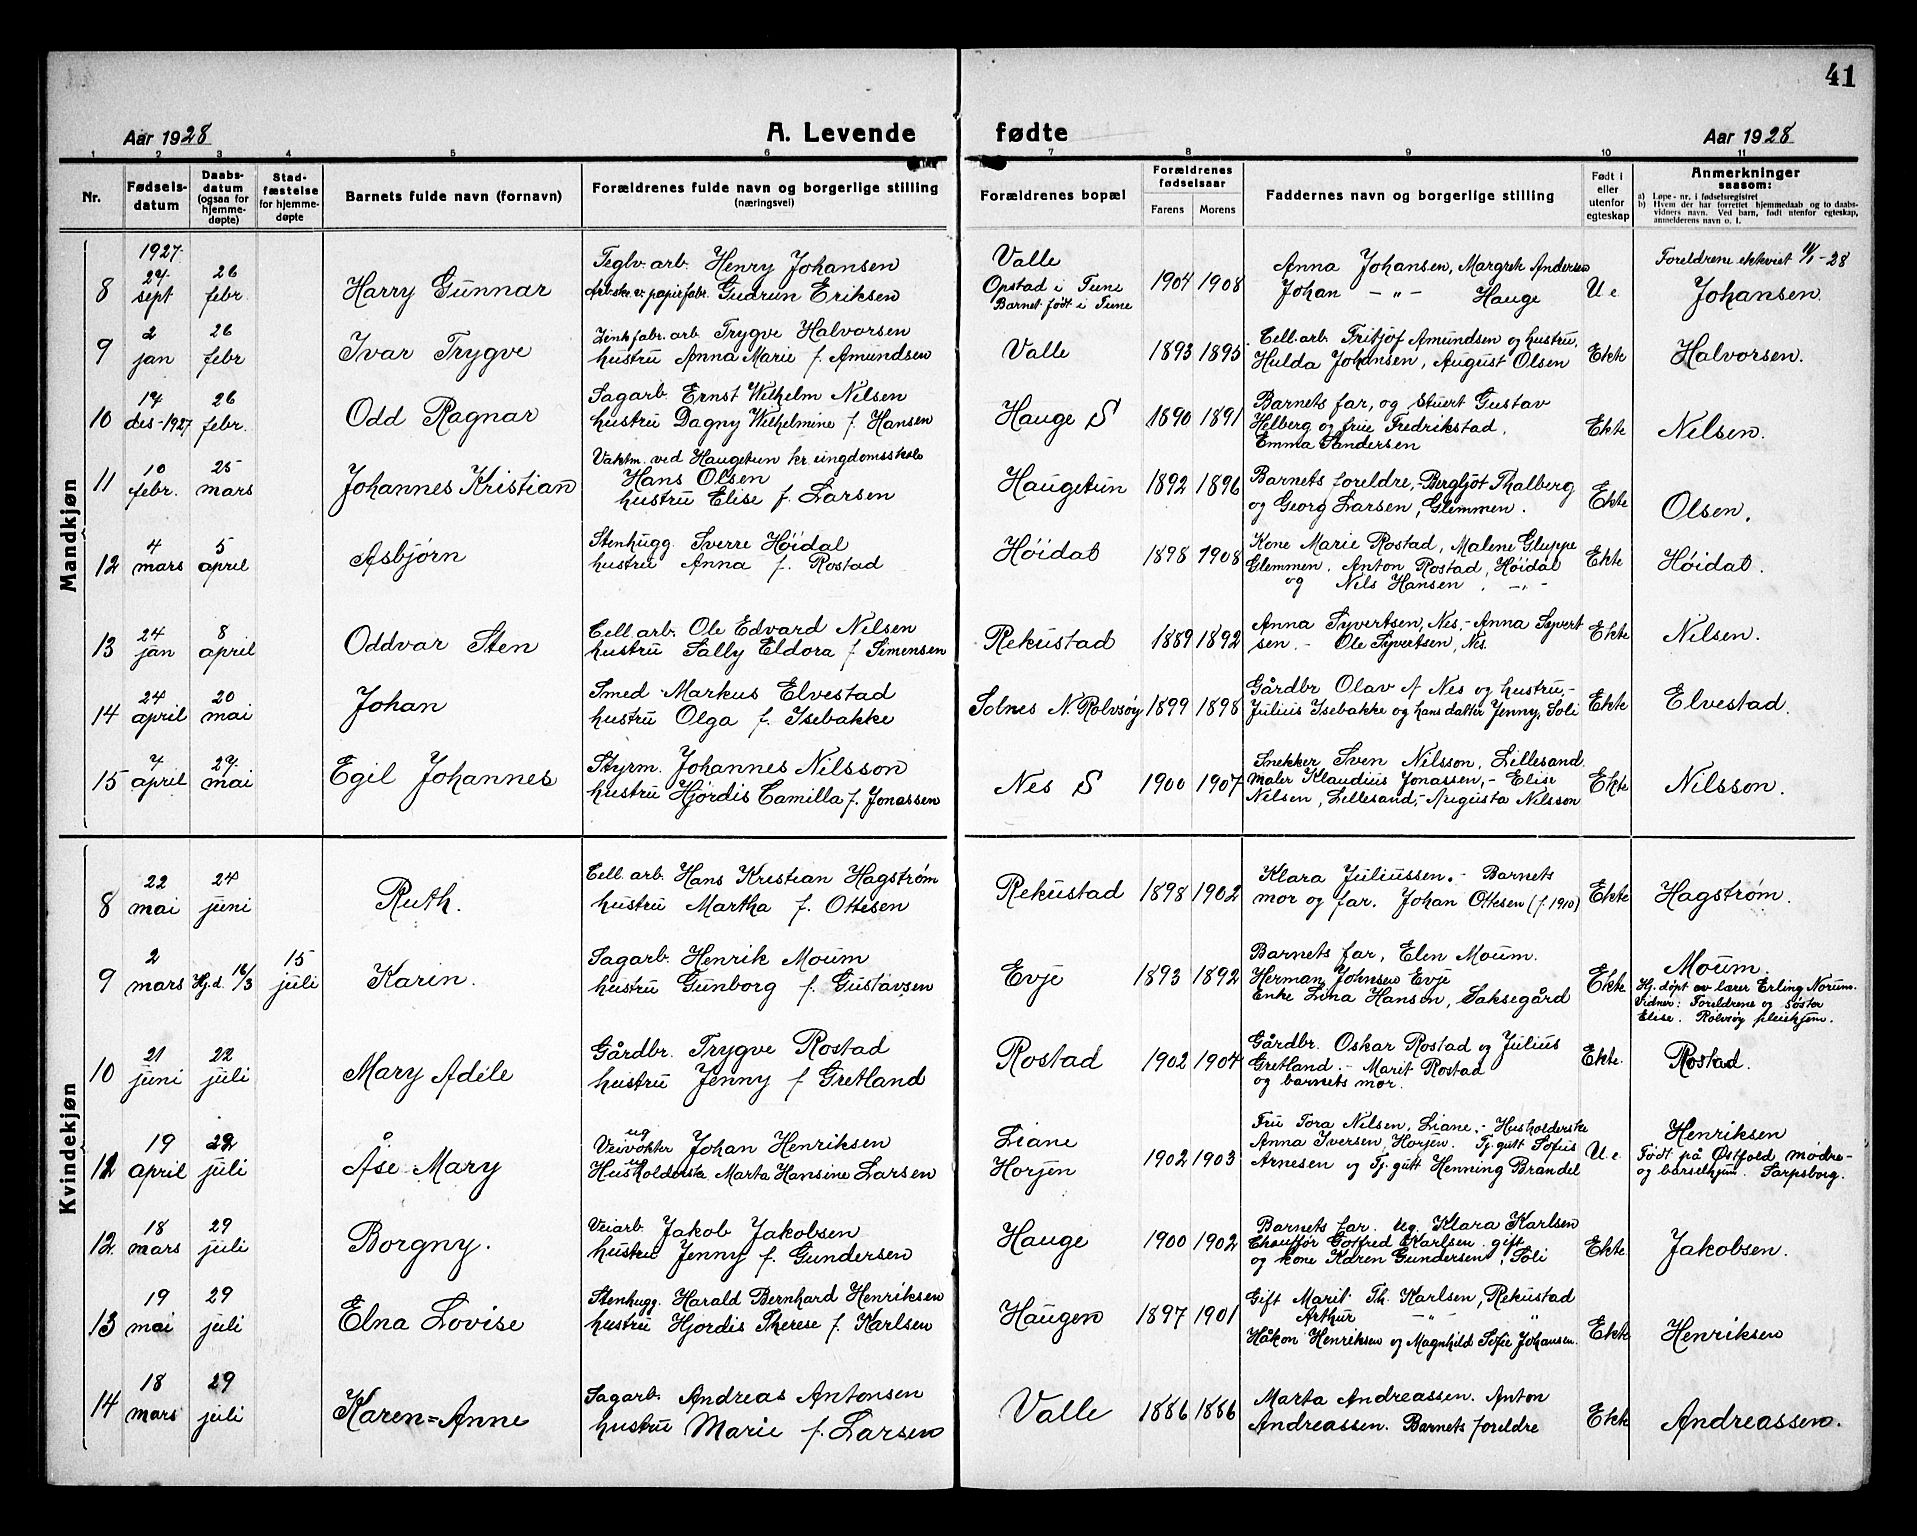 41
Aar 1928 A. Levende fødte Aar 1928
1 2 3 4 5 6 7 8 9 10 11
Nr.
Fødsels-
datum
Daabs-
datum
(ogsaa for
hjemme-
døpte)
Stad-
fæstelse
for hjemme-
døpte
Barnets fulde navn (fornavn)
Forældrenes fulde navn og borgerlige stilling
(næringsvei)
Forældrenes bopæl
Forældrenes
fødselsaar
Farens Morens
Faddernes navn og borgerlige stilling
Født i
eller
utenfor
egteskap
Anmerkninger
saasom:
a) Løpe-nr. i fødselsregistret
b) Hvem der har forrettet hjemmedaab og to daabs-
vidners navn. Ved barn, født utenfor egteskap,
anmelderens navn o. l.
Mandkjøn
8
1927
27
sept
26
febr
Harry Gunnar
Teglv. arb. Henry Johansen
Arb.ske v. papirfabr. Gudrun Eriksen
Valle
Opstad i Tune
Barnet født i Tune
1904 1908
Anna Johansen, Margrek Andersen
Johan — „ — Hauge
U e
Foreldrene ekkviet 11/1-28
Johansen.
9
2
jan
26
febr
Ivar Trygve
Zinkfabr. arb. Trygve Halvorsen
hustru Anna Marie f. Amundsen
Valle
1893 1895
Cell. arb. Fritjof Amundsen og hustru,
Hulda Johansen, August Olsen
Ekte
Halvorsen.
10
14
des-1927
26
febr.
Odd Ragnar
Sagarb. Ernst Wilhelm Nilsen
hustru Dagny Wilhelmine f. Hansen
Hauge S
1890 1891
Barnets far, og stuert Gustav
Helberg og frue Fredrikstad,
Emma Sandersen
Ekte
Nilsen.
11
10
febr.
25
mars
Johannes Kristian
Vaktm. ved Haugetun kr. ungdomsskole
Hans Olsen
hustru Elise f. Larsen
Haugetun
1892 1896
Barnets foreldre, - Bergljot Thalberg
og Georg Larsen, Glemmen.
Ekte
Olsen.
12
4
mars
5
april
Asbjørn
Stenhugg. Sverre Høidal
hustru Anna f. Rostad
Høidal
1898 1908
Kone Marie Rostad, Malene Gluppe
Glemmen. Anton Rostad, Høidal
og Nils Hansen, — „ -
Ekte
Høidal.
13
24
jan
8
april
Oddvar Sten
Cell. arb. Ole Edvard Nilsen
hustru Sally Eldora f. Simensen
Rekustad
1889 1892
Anna Syvertsen, Nes, - Anna Syvert
sen. - Ole Syvertsen, Nes.
Ekte
Nilsen.
14
24
april
20
mai
Johan
Smed Markus Elvestad
hustru Olga f. Isebakke
Solnes N. Rolvsøy
1899 1898
Gårdbr Olav A Nes og hustru, -
Julius Isebakke og hans datter Jenny, Soli
Ekte
Elvestad.
15
7
april
27.
mai
Egil Johannes
Styrm. Johannes Nilsson
hustru Hjørdis Camilla f. Jonassen
Nes S
1900 1907
Snekker Sven Nilsson, Lillesand.
Maler Klaudius Jonassen, - Elise
Nilsen, Lillesand, - Augusta Nilsson
Ekte
Nilsson.
Kvindekjøn
8
22
mai
24
juni
Ruth.
Cell. arb. Hans Kristian Hagstrøm
hustru Martha f. Ottesen
Rekustad
1898 1902
Klara Juliussen. - Barnets
mor og far. Johan Ottesen (f. 1910)
Ekte
Hagstrøm.
9
2
mars
Hj.d. 16/3
15
juli
Karin.
Sagarb. Henrik Moum
hustru Gunborg f. Gustavsen
Evje
1893 1892
Barnets far, Elen Moum.
Herman Johnsen Evje
Enke Lina Hansen, Saksegård
Ekte
Moum.
Hj. døpt av lærer Erling Norum.
Vidner: Foreldrene og søster
Elise. Rolvsøy pleiehjem.
10
21
juni
22
juli
Mary Adele
Gårdbr. Trygve Rostad
hustru Jenny f Gretland
Rostad
1902 1904
Gårdbr. Oskar Rostad og Julius
Gretland. - Marit Rostad
og barnets mor.
Ekte.
Rostad.
12
19
april
22
juli
Åse Mary
ug
Veivokter Johan Henriksen
Husholderske Marta Hansine Larsen
Liane
Horjen
1902 1903
Fru Tora Nilsen, Liane, - Husholderske
Anna Iversen, Horjen. Tj. gutt Sofus
Arnesen og Tj. gutt Henning Brandel
U e
Henriksen
Født på Østfold mødre-
og barselhjem. Sarpsborg.
12.
18
mars
29
juli
Borgny.
Veiarb. Jakob Jakobsen
hustru Jenny f. Gundersen
Hauge
1900 1902
Barnets far. Ug. Klara Karlsen
Chauffør Gotfred Karlsen. gift
og kone Karen Gundersen, Soli
Ekte
Jakobsen.
13
19
mai
29
juli
Elna Lovise
Stenhugg. Harald Bernhard Henriksen
hustru Hjordis Therese f. Karlsen
Haugen
1897 1901
Gift Marit Th. Karlsen, Rekustad
Arthur — „ — „
Håkon Henriksen og Magnhild Sofie Johansen.
Ekte
Henriksen
14
18
mars
29
juli
Karen=Anne
Sagarb. Andreas Antonsen
hustru Marie f. Larsen
Valle
1886 1886
Marta Andreassen. Anton
Andreassen. Barnets foreldre
Ekte
Andreassen.